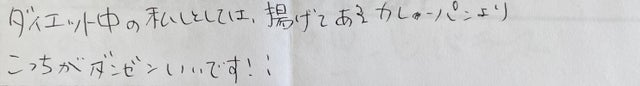 ダイエット中の私としては、揚げてあるカレーパンより
こっちがダンゼンいいです!!